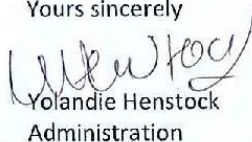 Yours sincerely
Yolandie Henstock
Administration